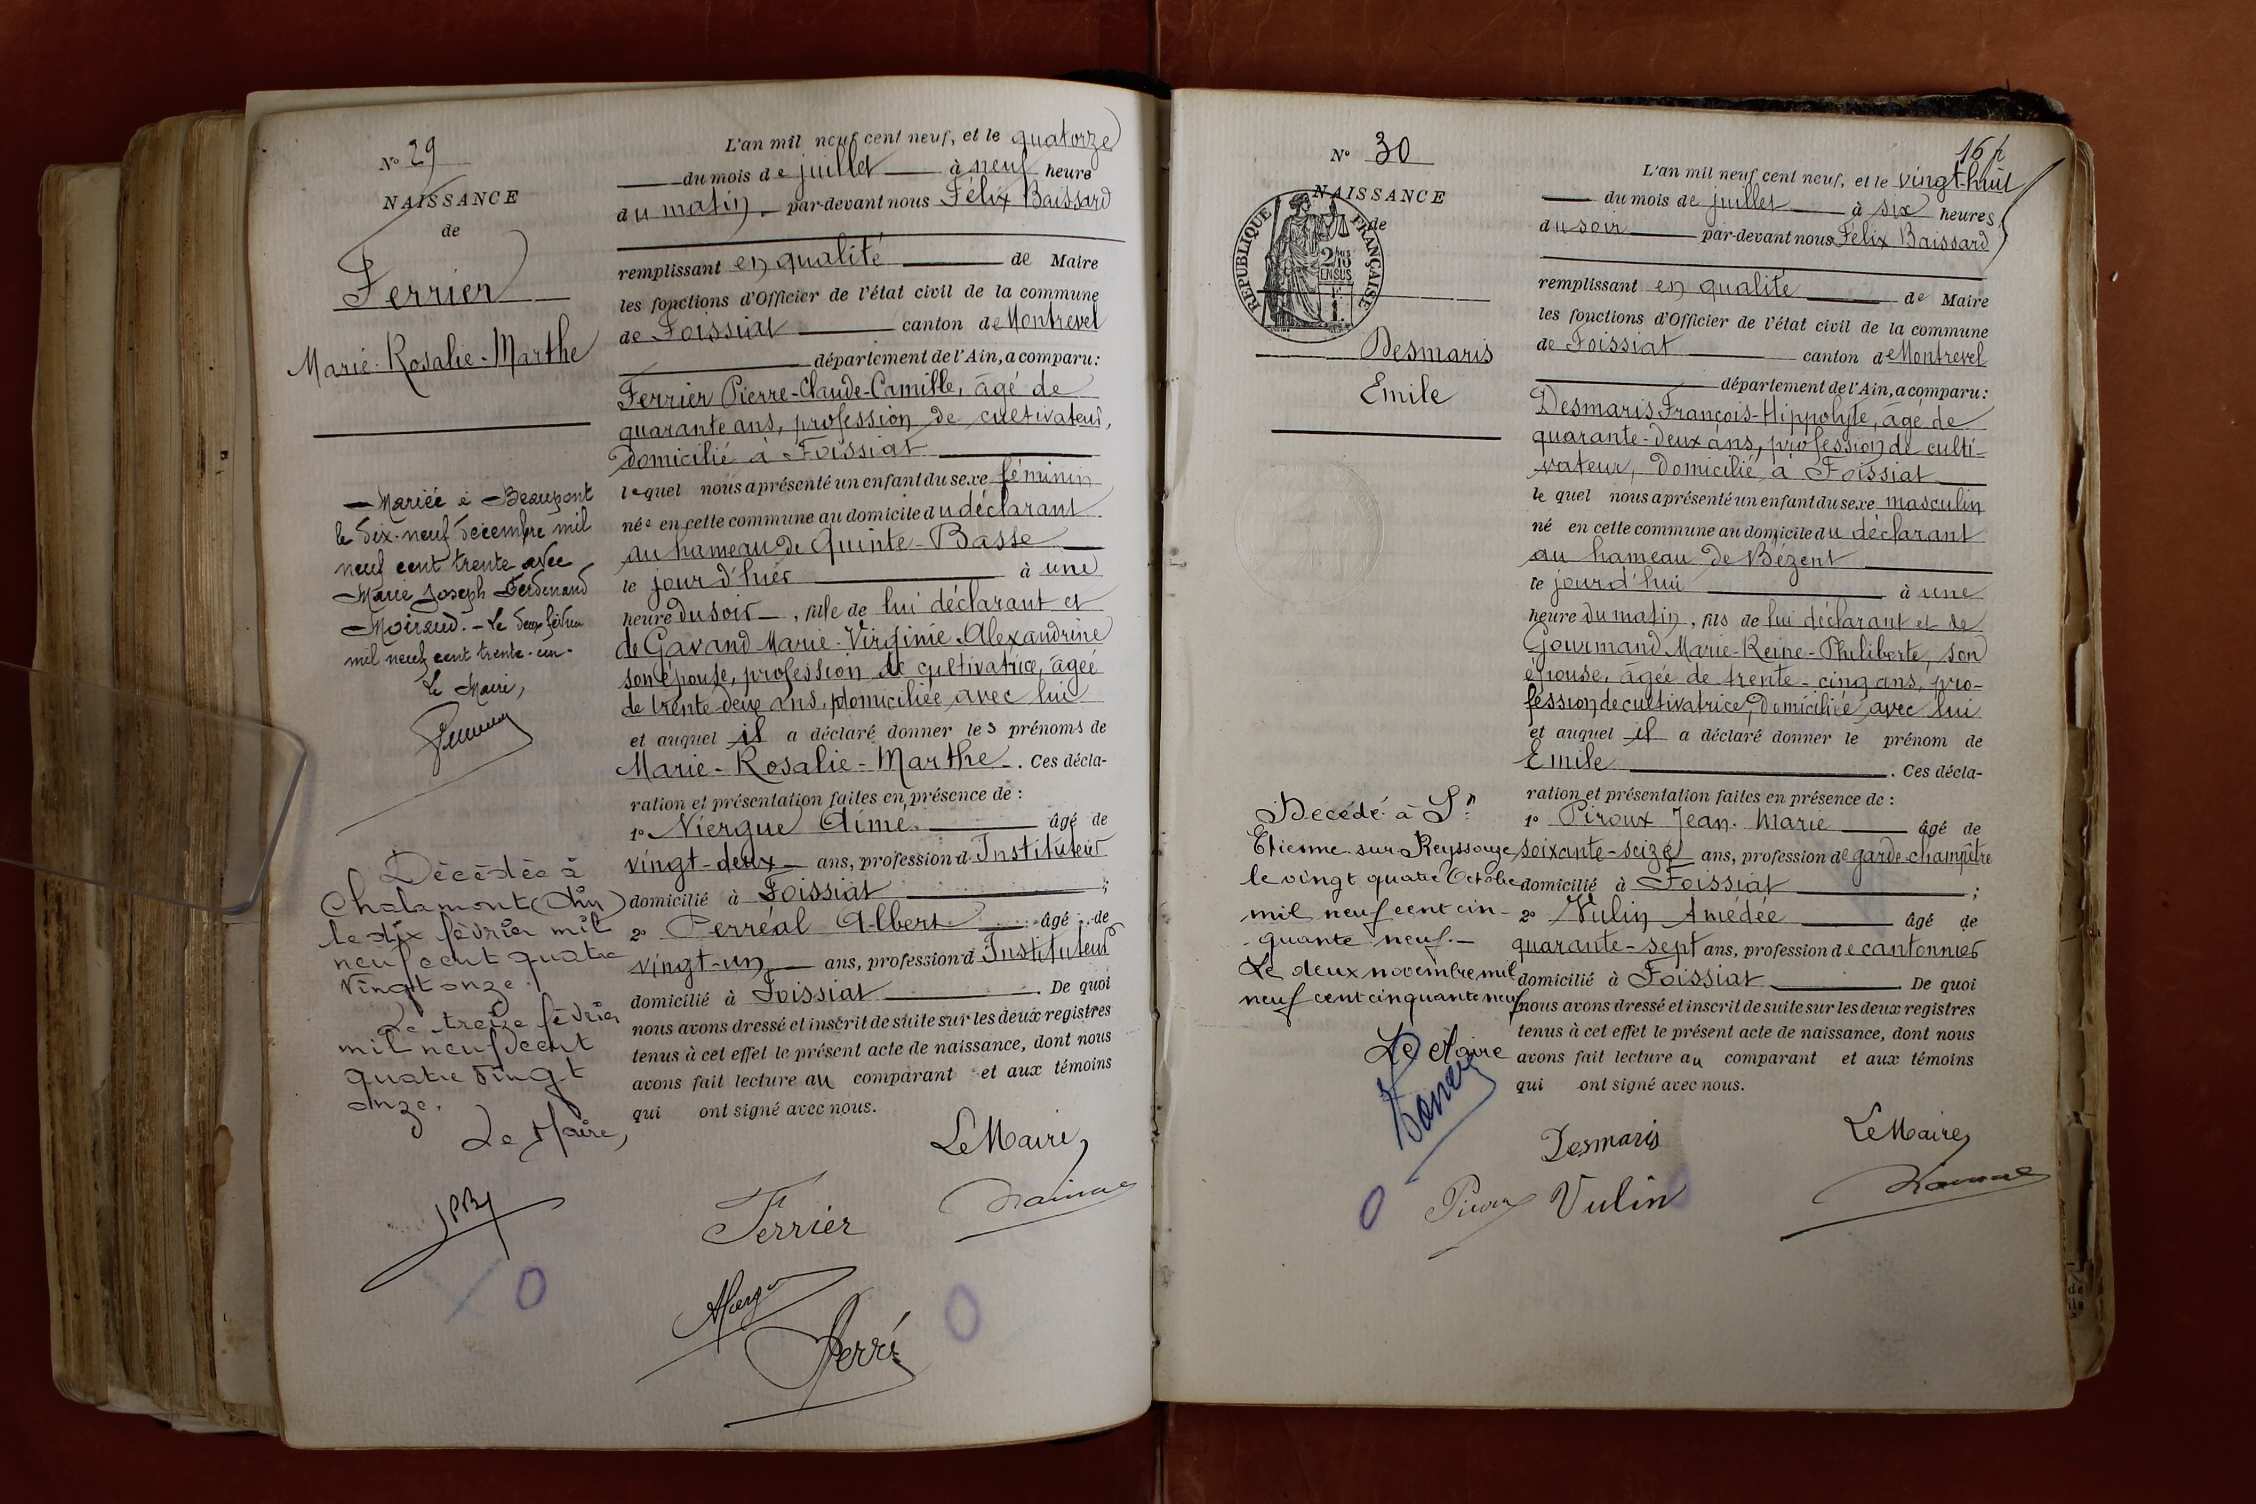 Nº 29
NAISSANCE
de
Ferrier
Marie-Rosalie-Marthe
Mariée à Beaupont
le dix-neuf décembre mil
neuf cent trente avec
Marie Joseph Ferdinand
Moiraud. - Le deux février
mil neuf cent trente-un.
Le Maire,
Décédée à
Chalamont (Ain)
le dix février mil
neuf cent quatre
vingt onze.
Le treize février
mil neuf cent
quatre vingt
onze.
Le Maire,
L'an mil neuf cent neuf, et le quatorze
du mois de juillet à neuf heures
du matin, par-devant nous Félix Baissard
remplissant en qualité de Maire
les fonctions d'Officier de l'état civil de la commune
de Foissiat canton de Montrevel
département de l'Ain, a comparu:
Ferrier Pierre-Claude-Camille, âgé de
quarante ans, profession de cultivateur,
domicilié à Foissiat
lequel nous a présenté un enfant du sexe féminin
née en cette commune au domicile du déclarant
au hameau de Quinte-Basse
le jour d'hier à une
heure du soir, fille de lui déclarant et
de Gavand Marie-Virginie-Alexandrine
son épouse, profession de cultivatrice, âgée
de trente-deux ans, domiciliée avec lui
et auquel il a déclaré donner les prénoms de
Marie-Rosalie-Marthe. Ces décla-
ration et présentation faites en présence de :
1º Niergue Aimé, âgé de
vingt-deux ans, profession d'Instituteur
domicilié à Foissiat ;
2º Perréal Albert âgé de
vingt-un ans, profession d'Instituteur
domicilié à Foissiat. De quoi
nous avons dressé et inscrit de suite sur les deux registres
tenus à cet effet le présent acte de naissance, dont nous
avons fait lecture au comparant et aux témoins
qui ont signé avec nous.
Le Maire,
Ferrier
Nº 30
NAISSANCE
de
RÉPUBLIQUE FRANÇAISE
Desmaris
Emile
Décédé à St
Etienne sur Reyssouze
le vingt quatre Octobre
mil neuf cent cin-
quante neuf.-
Le deux novembre mil
neuf cent cinquante neuf
Le Maire
16
L'an mil neuf cent neuf, et le vingt-huit
du mois de juillet à six heures
du soir par-devant nous Félix Baissard
remplissant en qualité de Maire
les fonctions d'Officier de l'état civil de la commune
de Foissiat canton de Montrevel
département de l'Ain, a comparu:
Desmaris François-Hippolyte, âgé de
quarante-deux ans, profession de culti-
vateur, domicilié à Foissiat
lequel nous a présenté un enfant du sexe masculin
né en cette commune au domicile du déclarant
au hameau de Bézent
le jourd'hui à une
heure du matin, fils de lui déclarant et de
Gourmand Marie-Reine-Philiberte, son
épouse, âgée de trente-cinq ans, pro-
fession de cultivatrice, domiciliée avec lui
et auquel il a déclaré donner le prénom de
Emile. Ces décla-
ration et présentation faites en présence de :
1º Piroux Jean-Marie âgé de
soixante-seize ans, profession de garde-champêtre
domicilié à Foissiat ;
2º Vulin Amédée âgé de
quarante-sept ans, profession de cantonnier
domicilié à Foissiat. De quoi
nous avons dressé et inscrit de suite sur les deux registres
tenus à cet effet le présent acte de naissance, dont nous
avons fait lecture au comparant et aux témoins
qui ont signé avec nous.
Desmaris Le Maire,
Piroux Vulin